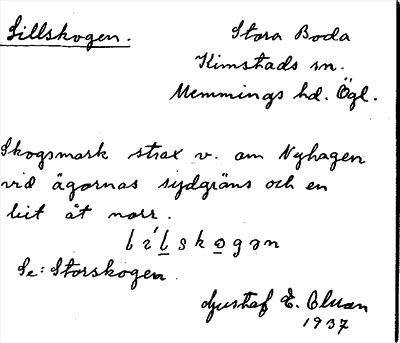 Lillskogen.
Stora Boda
Kimstads sn.
Memmings hd. Ögl.
Skogsmark strax v. om Nyhagen
vid ägornas sydgräns och en
bit åt norr.
Se: Storskogen
Gustaf E.
1937